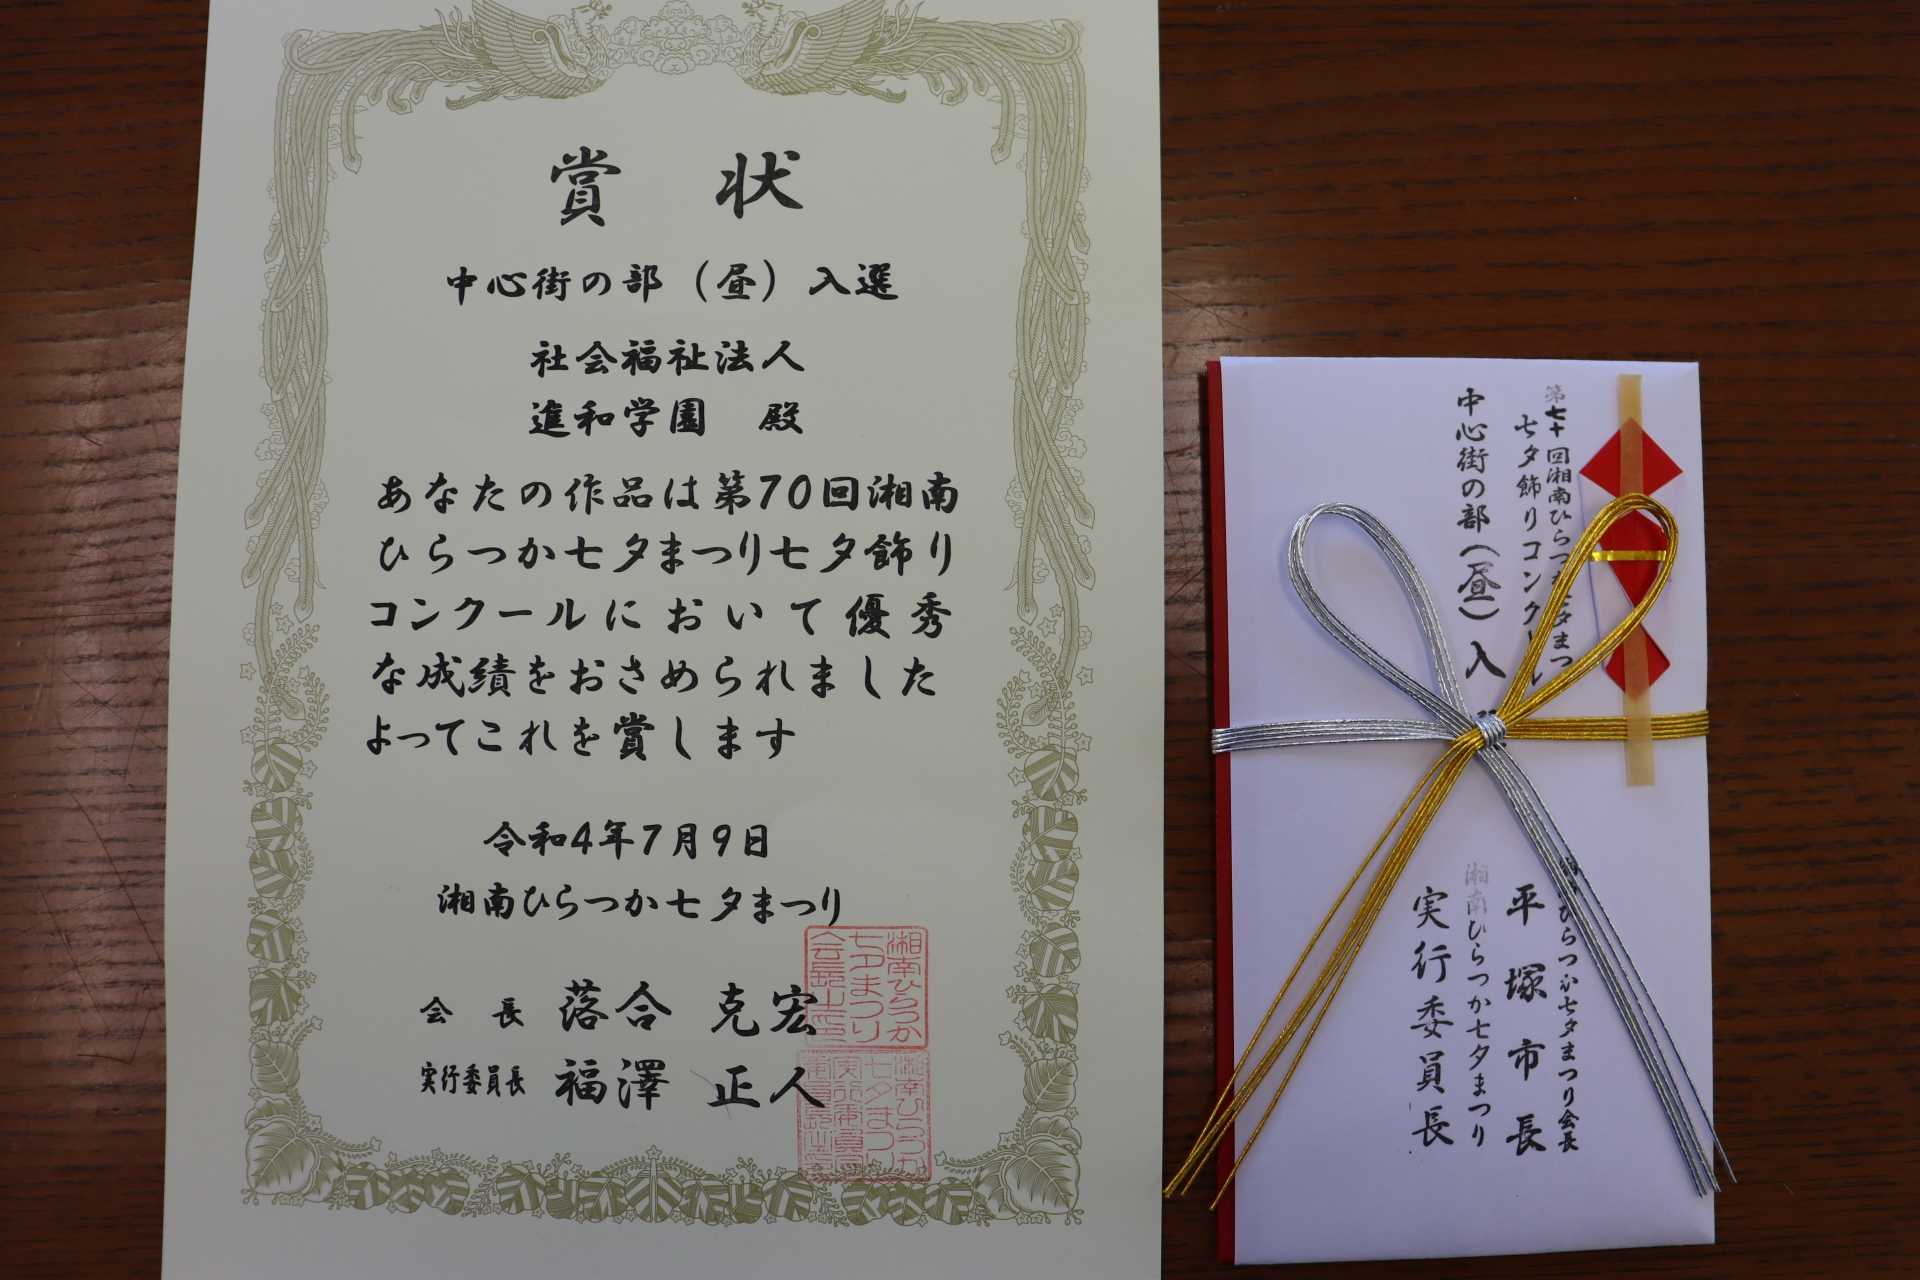 賞状
中心街の部（昼）入選
社会福祉法人
進和学園　殿
あなたの作品は第70回湘南
ひらつか七夕まつり七夕飾り
コンクールにおいて優秀
な成績をおさめられました
よってこれを賞します
令和4年7月9日
湘南ひらつか七夕まつり
会長　落合　克宏
実行委員長　福澤　正人
湘南ひらつか
七夕まつり
会長之印
第七十回湘南ひらつか七夕まつ
七夕飾りコンクール
中心街の部（昼）入
ひらつか七夕まつり会長
平塚市長
湘南ひらつか七夕まつり
実行委員長